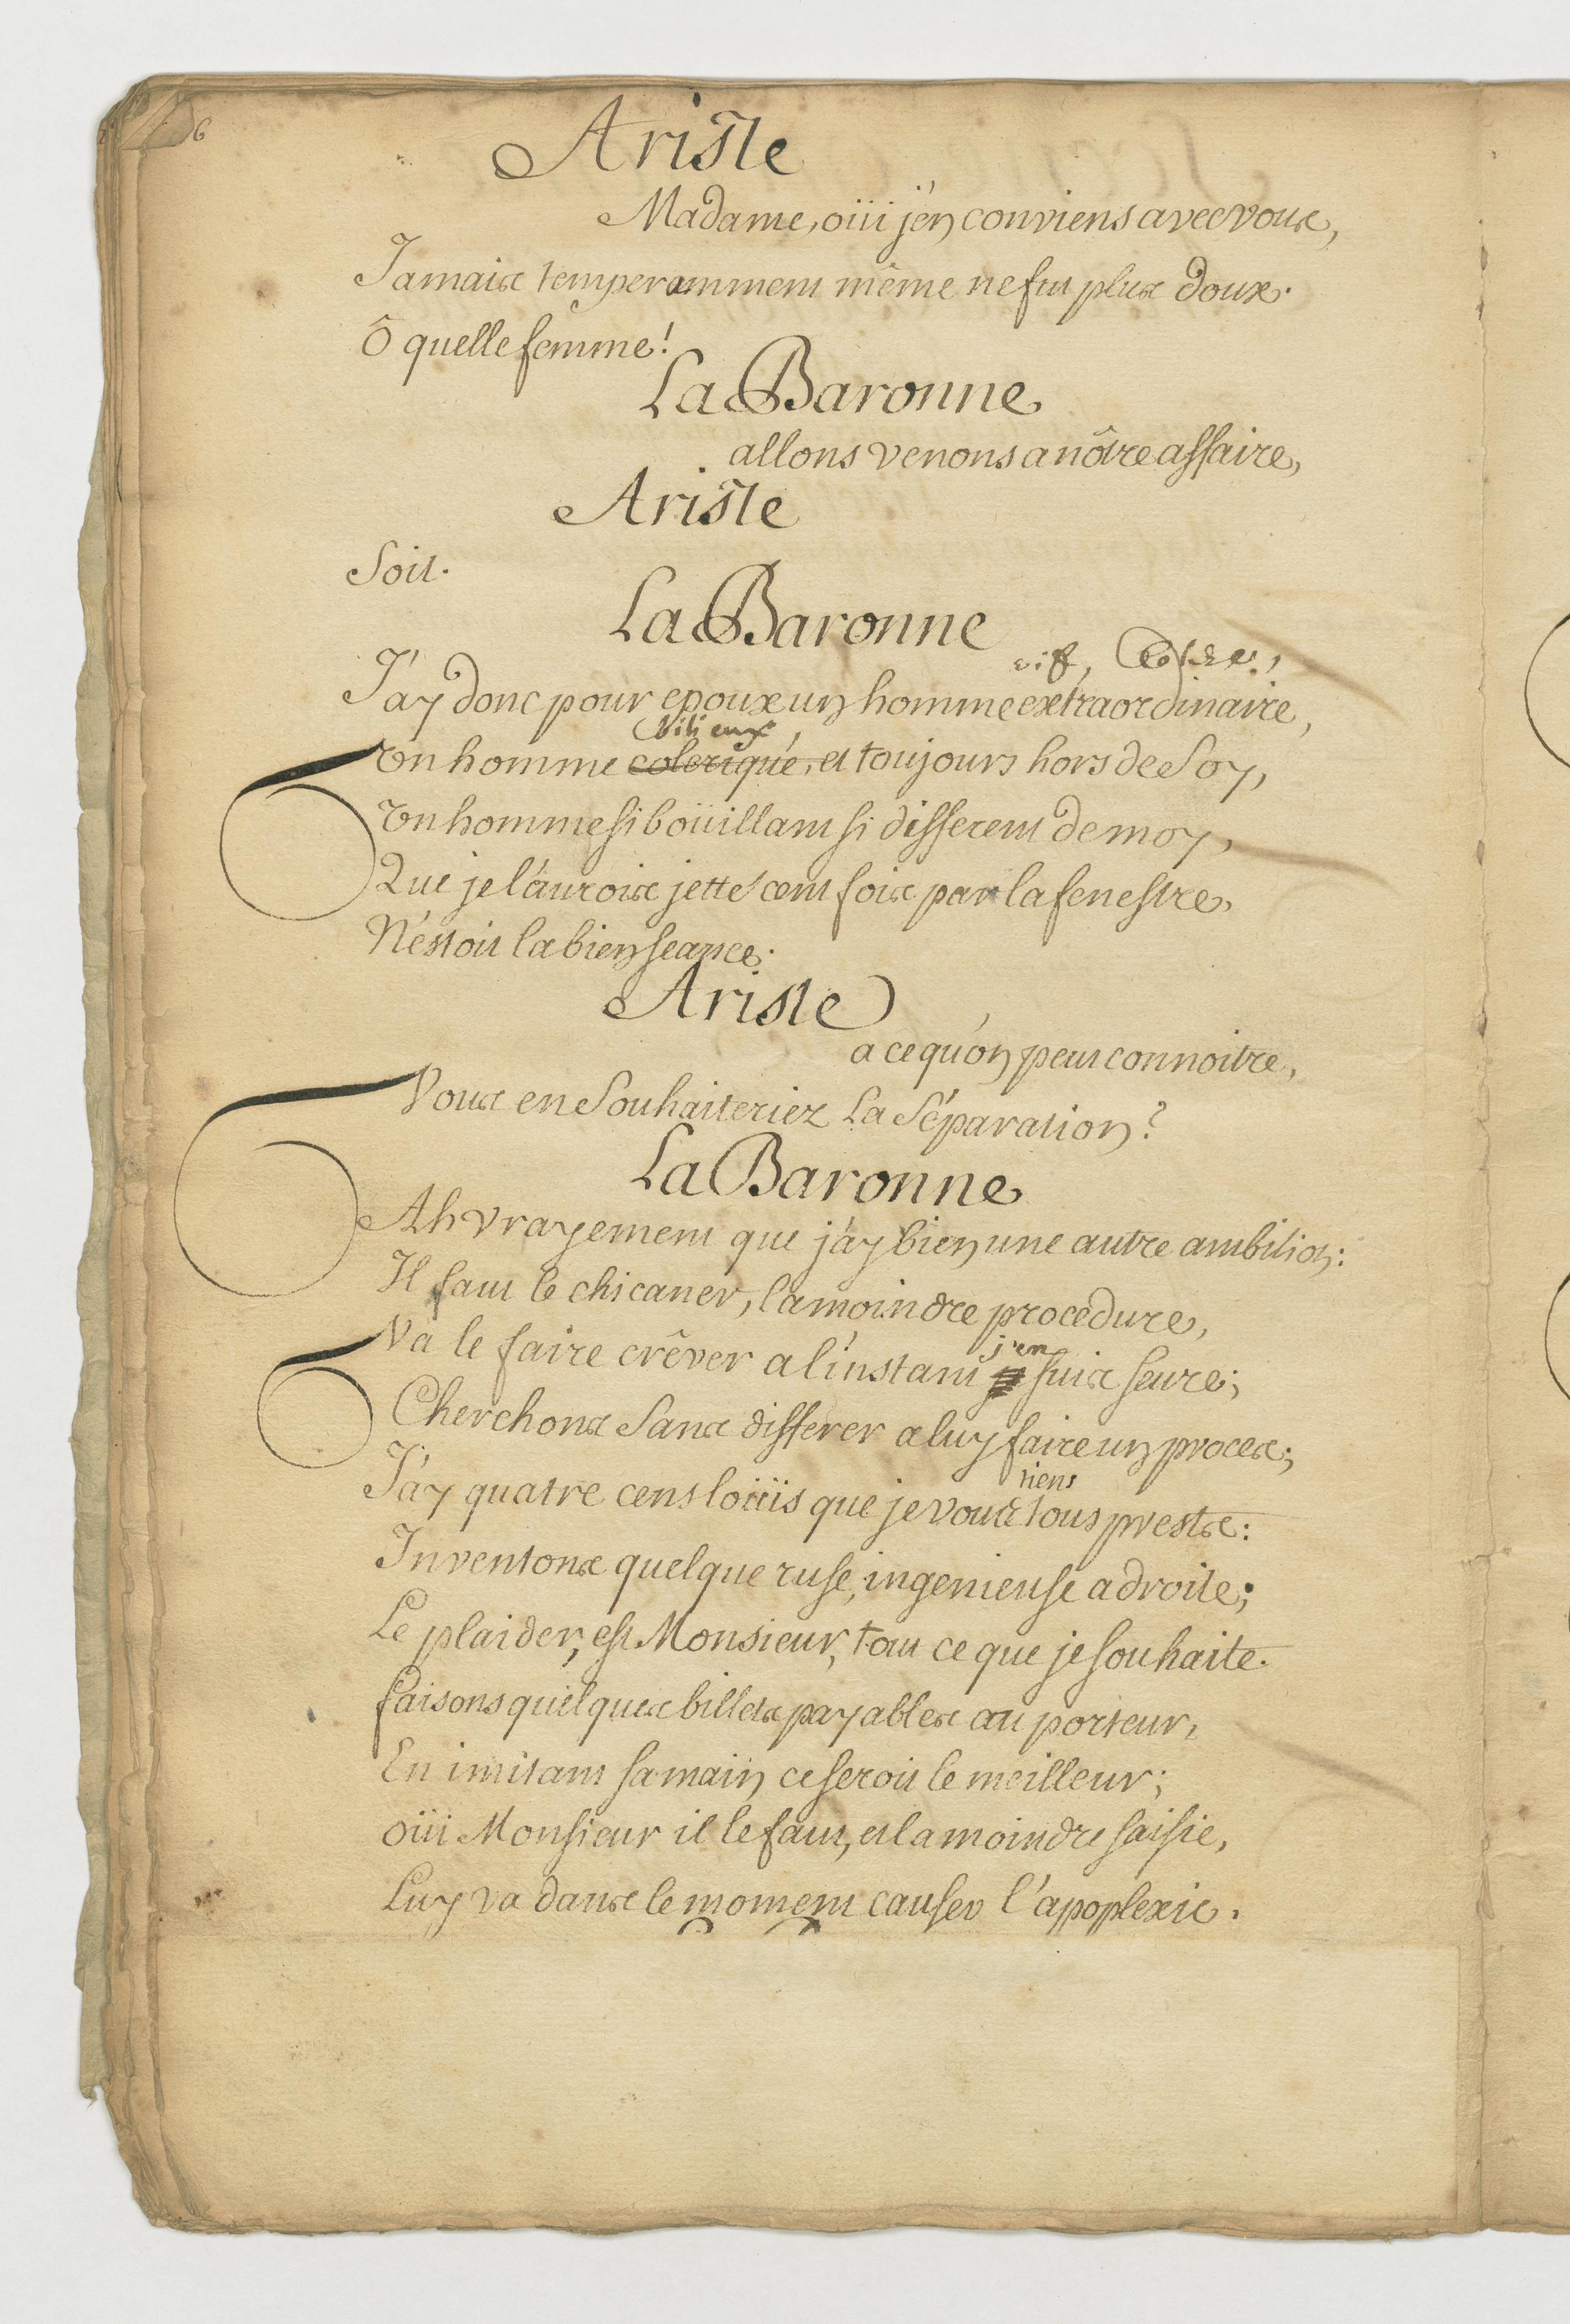 6
Ariste
Madame, oüi j'en conviens avec vous,
Jamais temperamment même ne fut plus doux.
ô quelle femme!
La Baronne
allons venons a nôtre affaire,
Ariste
Soit.
La Baronne
vif,
J'ay donc pour epoux un homme extraordinaire,
bilieux,
Un homme colerique, et toujours hors de Soy,
Un homme si boüillant si different de moy,
Que je l'aurois jetté cent fois par la fenestre,
N'éstoit la bienseance.
Ariste
a ce qu'on peut connoitre,
Vous en Souhaiteriez La Séparation?
La Baronne
Ah vrayement que j'ay bien une autre ambition:
Il faut le chicaner, la moindre procedure,
Va le faire crêver a l'instant
j'en
suis seure;
Cherchons Sans differer a luy faire un proces;
tiens
J'ay quatre cens loüis que je vous tous prests:
Inventons quelque ruse, ingenieuse adroite;
Le plaider, est Monsieur, tout ce que je souhaite.
faisons quelques billets payables au porteur,
En imitant sa main ce seroit le meilleur;
oüi Monsieur il le faut, et la moindre saisie,
Luy va dans le moment causer l'apoplexie.